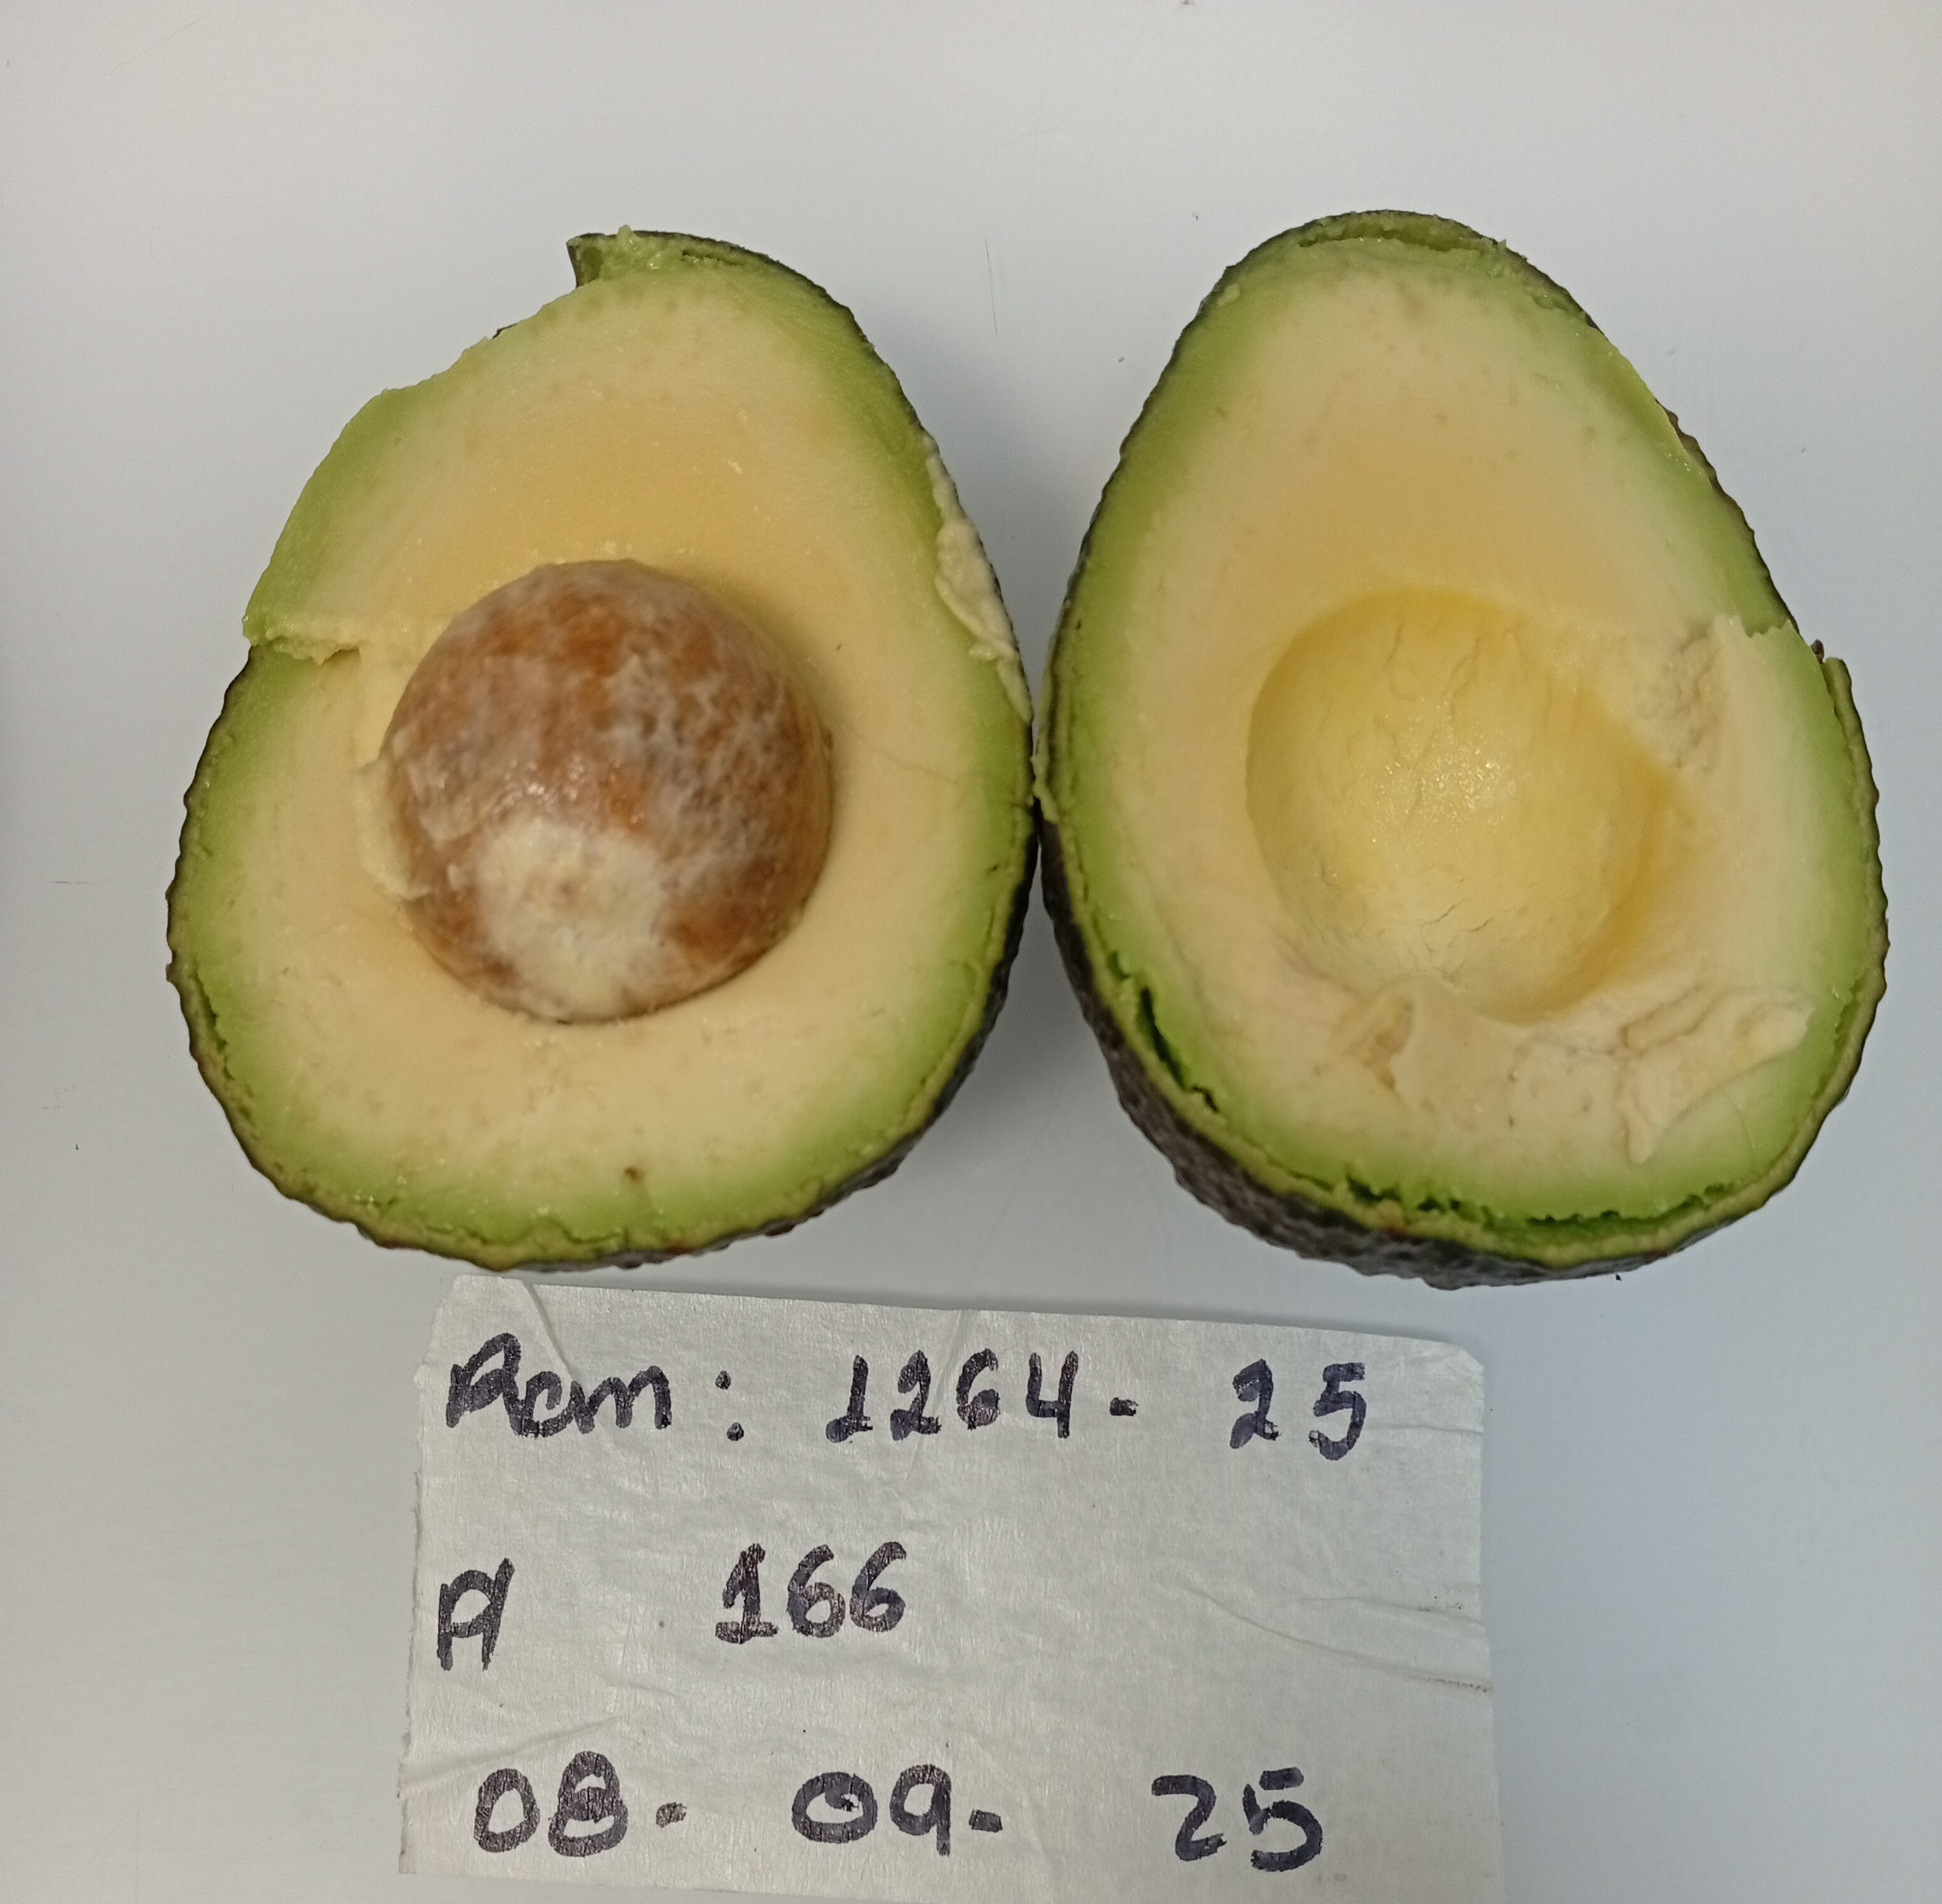 Acm: 1264- 25
A 166
08- 09- 25